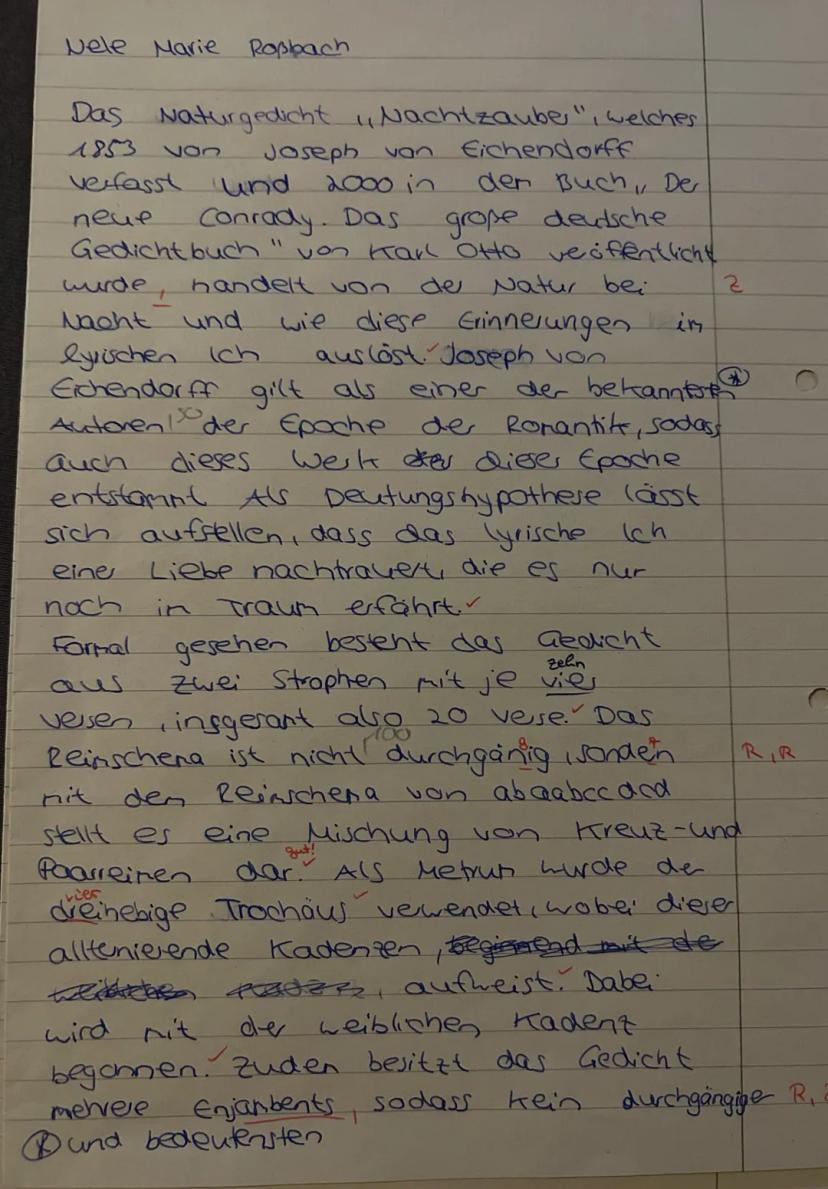 Nele Marie Roßbach
Das Naturgedicht „Nachtzauber", welches
1853 von Joseph von Eichendorff
verfasst und 2000 in dem Buch „Der
neue Conrady. Das große deutsche
Gedichtbuch" von Karl Otto veröffentlicht
wurde, handelt von der Natur bei Z
Nacht und wie diese Erinnerungen im
lyrischen Ich auslöst. Joseph von
Eichendorff gilt als einer der bekanntesten
Autoren 50 der Epoche der Romantik, sodass
auch dieses Werk dieser Epoche
entstammt. Als Deutungshypothese lässt
sich aufstellen, dass das lyrische Ich
einer Liebe nachtrauert, die es nur
noch im Traum erfährt.
Formal gesehen besteht das Gedicht
zehn
aus zwei Strophen mit je vier
Versen, insgesamt also 20 Verse. Das
100
Reimschema ist nicht durchgänig, sonden R, R
g r
mit dem Reimschema von abaabccdcd
stellt es eine Mischung von Kreuz- und
gut!
Paarreimen dar. Als Metrum wurde der
vier
dreihebige Trochäus verwendet, wobei dieser
alltenierende Kadenzen, beginnend mit der
aufweist. Dabei
wird mit der weiblichen Kadenz
begonnen. Zudem besitzt das Gedicht
mehrere Enjambents, sodass kein durchgängiger R,
* und bedeutensten